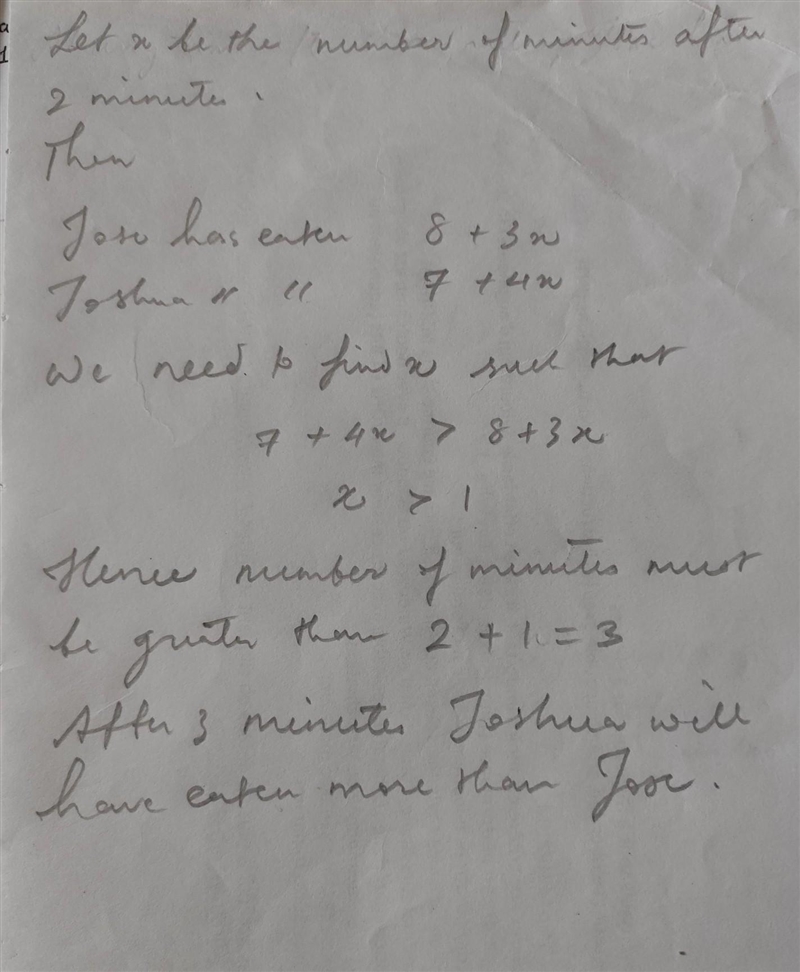 a
1
Let x be the number of minutes after
2 minutes.
Then
Jose has eaten 8 + 3x
Joshua " " 7 + 4x
We need to find x such that
7 + 4x > 8 + 3x
x > 1
Hence number of minutes must
be greater than 2 + 1 = 3
After 3 minutes Joshua will
have eaten more than Jose.